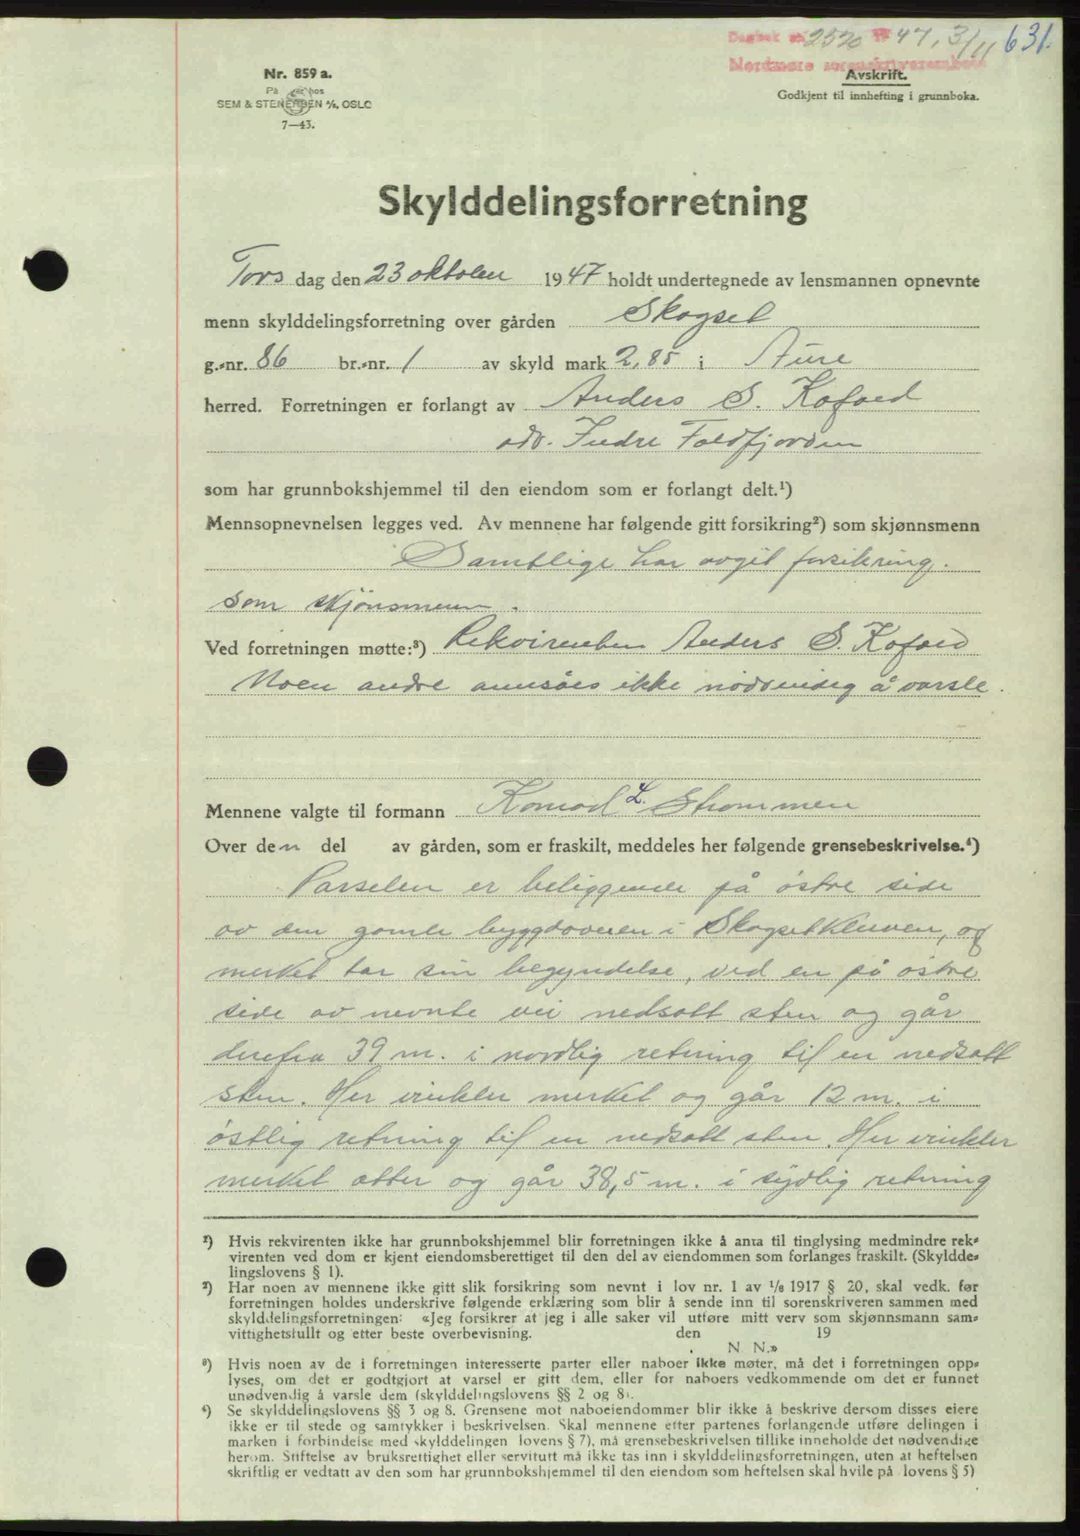 Dagbok nr. 2520 19 47, 3/11 631.
Nordmøre sorenskriverembede
Nr. 859 a.
På lager hos
SEM & STENERSEN A/S, OSLO
7—43.
Avskrift.
Godkjent til innhefting i grunnboka.
Skylddelingsforretning
Tors dag den 23 oktober 1947 holdt undertegnede av lensmannen opnevnte
menn skylddelingsforretning over gården Skogset
g.-nr. 86 br.-nr. 1 av skyld mark 2,85 i Aure
herred. Forretningen er forlangt av Anders S. Kofoed
adr. Indre Foldfjorden
som har grunnbokshjemmel til den eiendom som er forlangt delt.¹)
Mennsopnevnelsen legges ved. Av mennene har følgende gitt forsikring²) som skjønnsmenn
Samtlige har avgit forsikring.
som skjönsmenn.
Ved forretningen møtte:³) Rekvirenten Anders S. Kofoed
Noen andre ansåes ikke nödvendig å varsle.
Mennene valgte til formann Konrad L. Strommen
Over den del av gården, som er fraskilt, meddeles her følgende grensebeskrivelse.⁴)
Parselen er beliggende på östre side
av den gamle bygdaveien i Skogsetkleiven, og
merket tar sin begyndelse, ved en på östre
side av nevnte vei nedsatt sten og går
derefra 39 m. i nordlig retning til en nedsatt
sten. Her vinkler merket og går 12 m. i
östlig retning til en nedsatt sten. Her vinkler
merket atter og går 38,5 m. i sydlig retning
¹) Hvis rekvirenten ikke har grunnbokshjemmel blir forretningen ikke å anta til tinglysing medmindre rek-
virenten ved dom er kjent eiendomsberettiget til den del av eiendommen som forlanges fraskilt. (Skyldde-
lingslovens § 1).
²) Har noen av mennene ikke gitt slik forsikring som nevnt i lov nr. 1 av 1/8 1917 § 20, skal vedk. før
forretningen holdes underskrive følgende erklæring som blir å sende inn til sorenskriveren sammen med
skylddelingsforretningen: «Jeg forsikrer at jeg i alle saker vil utføre mitt verv som skjønnsmann sam-
vittighetsfullt og etter beste overbevisning. den 19
N. N.»
³) Hvis noen av de i forretningen interesserte parter eller naboer ikke møter, må det i forretningen opp-
lyses, om det er godtgjort at varsel er gitt dem, eller for naboers vedkommende om det er funnet
unødvendig å varsle dem (skylddelingslovens §§ 2 og 8).
⁴) Se skylddelingslovens §§ 3 og 8. Grensene mot naboeiendommer blir ikke å beskrive dersom disses eiere
ikke er til stede og samtykker i beskrivelsen. Skal mennene etter partenes forlangende utføre delingen i
marken i forbindelse med skylddelingen lovens § 7), må grensebeskrivelsen tillike inneholde det nødvendige
herom. Stiftelse av bruksrettighet eller servitutt må ikke tas inn i skylddelingsforretningen, uten at heftelsen
skriftlig er vedtatt av den som har grunnbokshjemmel til den eiendom som heftelsen skal hvile på lovens § 5)